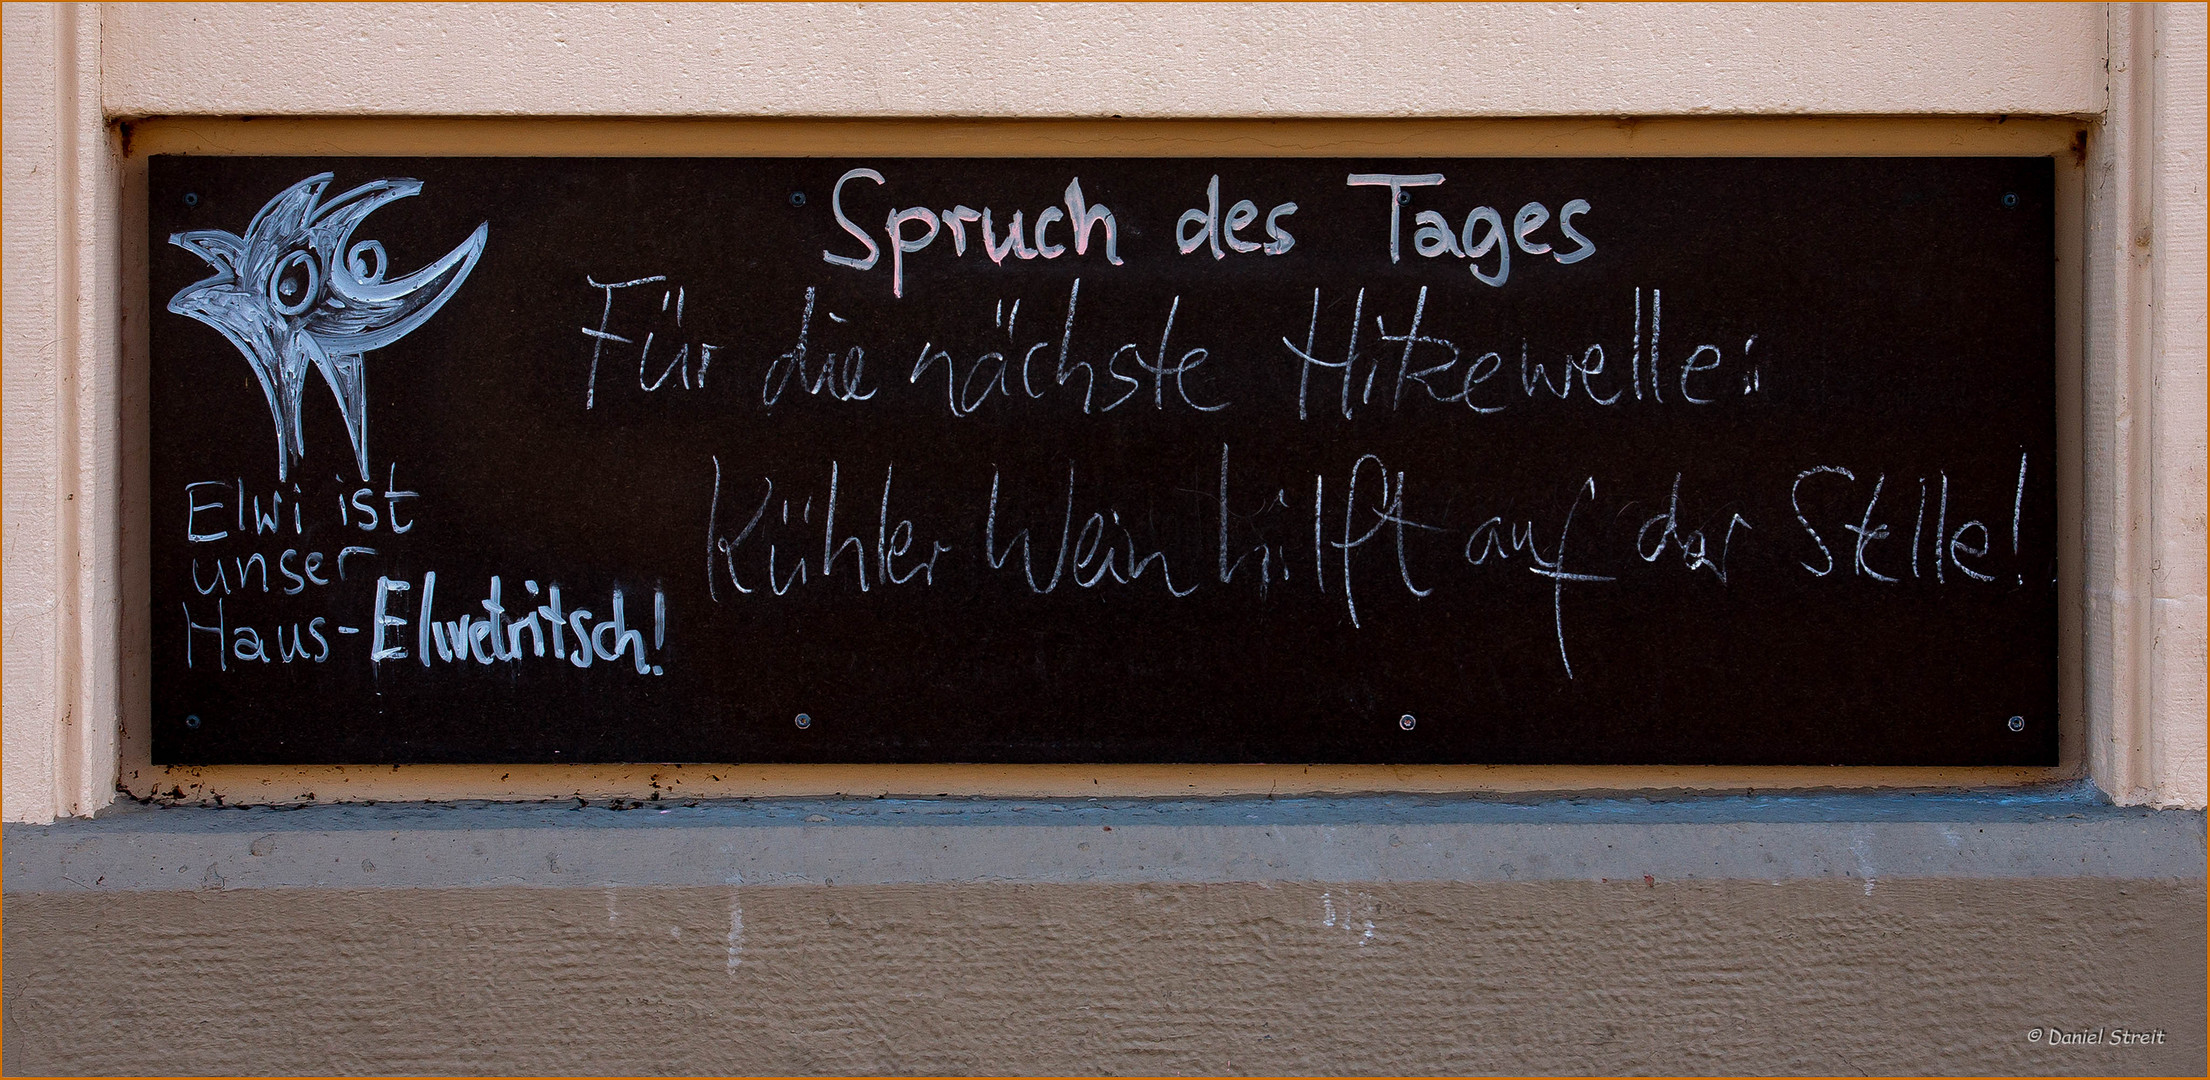 Spruch des Tages
Für die nächste Hitzewelle:
Kühler Wein hilft auf der Stelle!
Elwi ist
unser
Haus-Elwetritsch!
© Daniel Streit